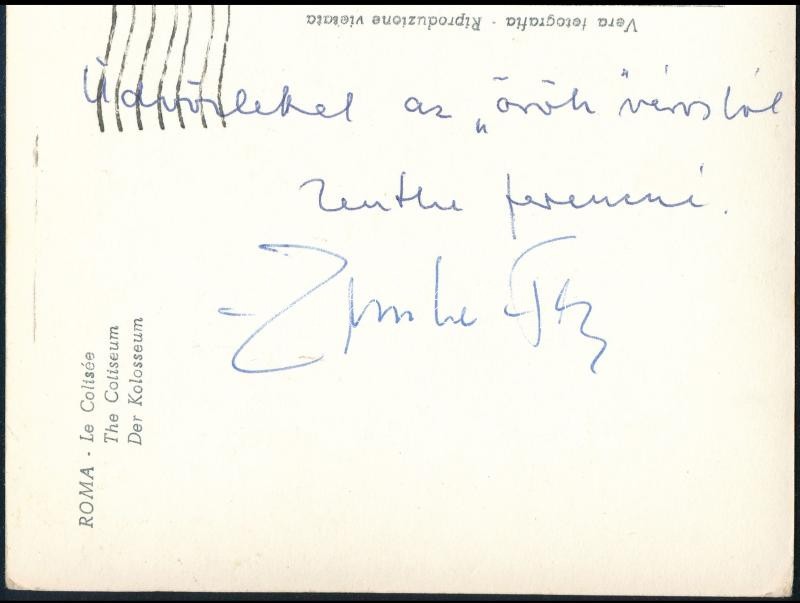 Vera fotografia - Riproduzione vietata
Üdvözlettel az „örök" városból
Zenthe Ferencné.
Zenthe F
ROMA - Le Colisée
The Coliseum
Der Kolosseum